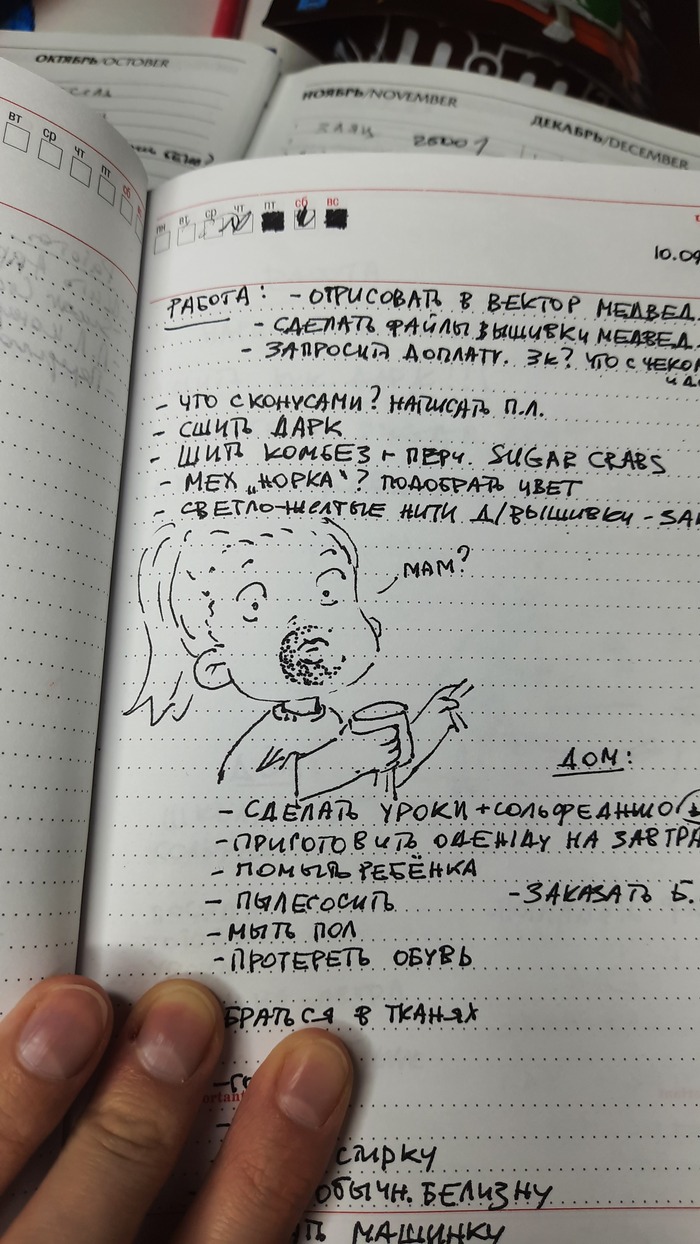 ОКТЯБРЬ/OCTOBER
НОЯБРЬ/NOVEMBER
ДЕКАБРЬ/DECEMBER
m&m
вт ср чт пт сб
пн вт ср чт пт сб вс
10.09
РАБОТА: - ОТРИСОВАТЬ В ВЕКТОР МЕДВЕД.
- СДЕЛАТЬ ФАЙЛЫ ВЫШИВКИ МЕДВЕД.
- ЗАПРОСИТЬ ДОПЛАТУ. ЗК? ЧТО С ЧЕКОМ
- ЧТО С КОНУСАМИ? НАПИСАТЬ П.Л.
- СШИТЬ ДАРК
- ШИТЬ КОМБЕЗ + ПЕРЧ. SUGAR CRABS
- МЕХ „НОРКА"? ПОДОБРАТЬ ЦВЕТ
- СВЕТЛО-ЖЕЛТЫЕ НИТИ Д/ВЫШИВКИ - ЗАК
МАМ?
ДОМ:
- СДЕЛАТЬ УРОКИ + СОЛЬФЕДЖИО
- ПРИГОТОВИТЬ ОДЕЖДУ НА ЗАВТРА
- ПОМЫТЬ РЕБЁНКА
- ПЫЛЕСОСИТЬ - ЗАКАЗАТЬ Б.
- МЫТЬ ПОЛ
- ПРОТЕРЕТЬ ОБУВЬ
БРАТЬСЯ В ТКАНЯХ
СТИРКУ
ОБЫЧН. БЕЛИЗНУ
МАШИНКУ